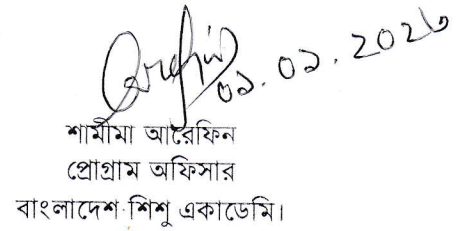 ০১.০১.২০২৬
শামীমা আরেফিন
প্রোগ্রাম অফিসার
বাংলাদেশ শিশু একাডেমি।